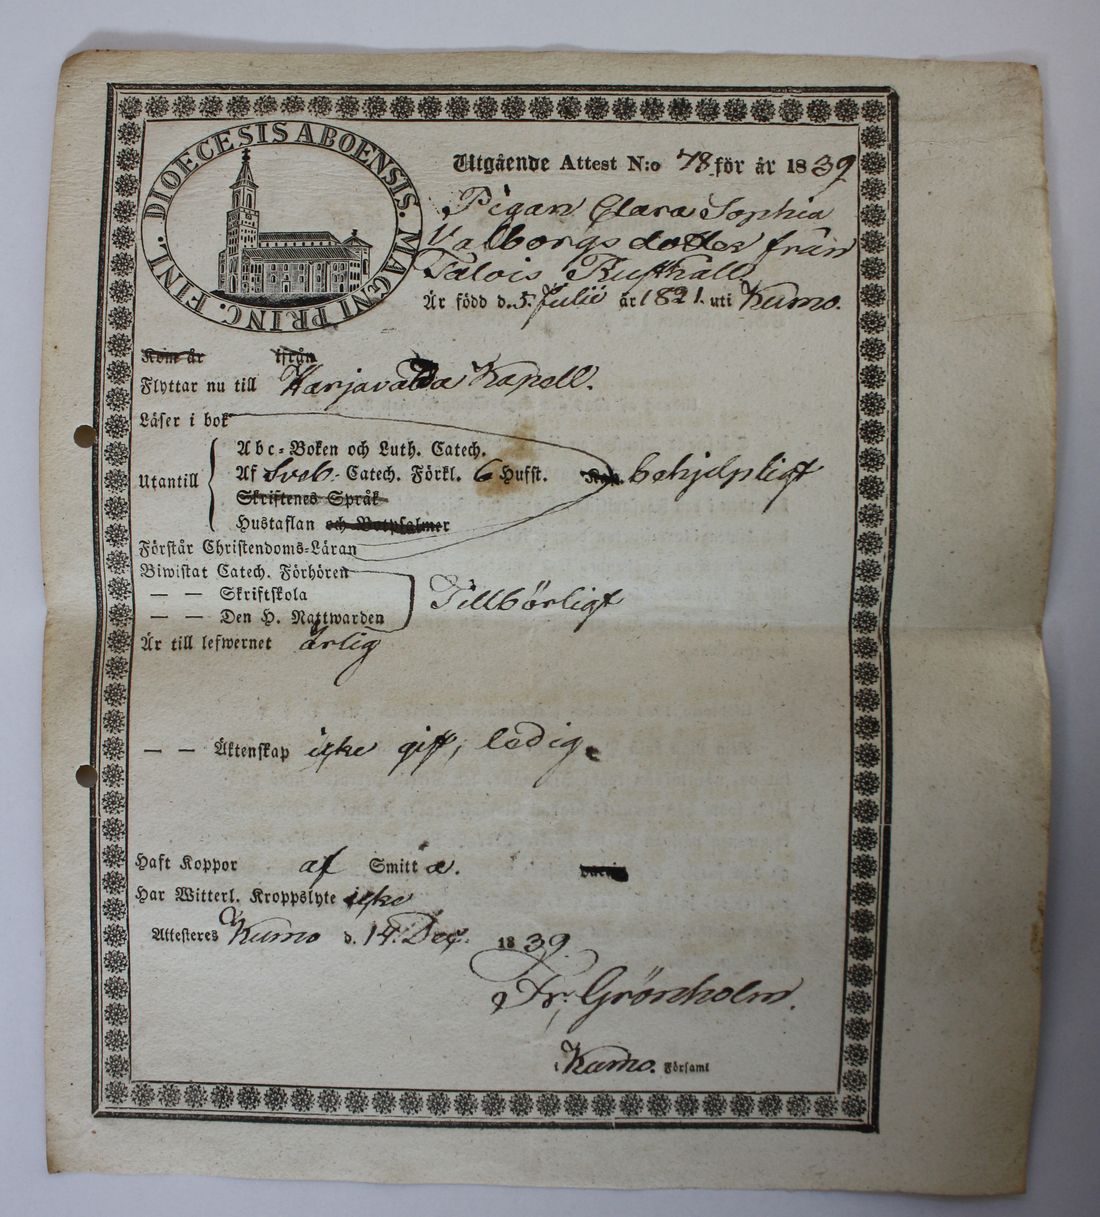 DIOECESIS ABOENSIS. MAGNI PRINC. FINL.
Utgående Attest N:o 78 för år 1839
Pigan Clara Sophia
Valborgsdotter från
Talois Rusthåll
Är född d. 5. Julii år 1821. uti Kumo.
Kom år ifrån
Flyttar nu till Harjavalda Kapell.
Läser i bok
Abc-Boken och Luth. Catech.
Utantill Af Sveb. Catech. Förkl. 6 Hufst. behjelpligt
Skriftenes Språk
Hustaflan och Botpsalmer
Förstår Christendoms-Läran
Biwistat Catech. Förhören
— — Skriftskola Tillbörligt
— — Den H. Nattwarden
Är till lefwernet ärlig
— — Äktenskap icke gift, ledig.
Haft Koppor af Smitta.
Har Witterl. Kroppslyte icke
Attesteres Kumo d. 14. Dec. 1839.
Fr. Grönholm.
i Kumo. Församl